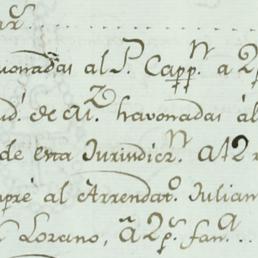 avonadas al P. Capp.n a 2p
ud. de M.d havonadas ál
de esta Iurisdicc.n a 12 r
mpré al Arrendat.o Iulian
l Lorano, â 2p.s fan.a ...